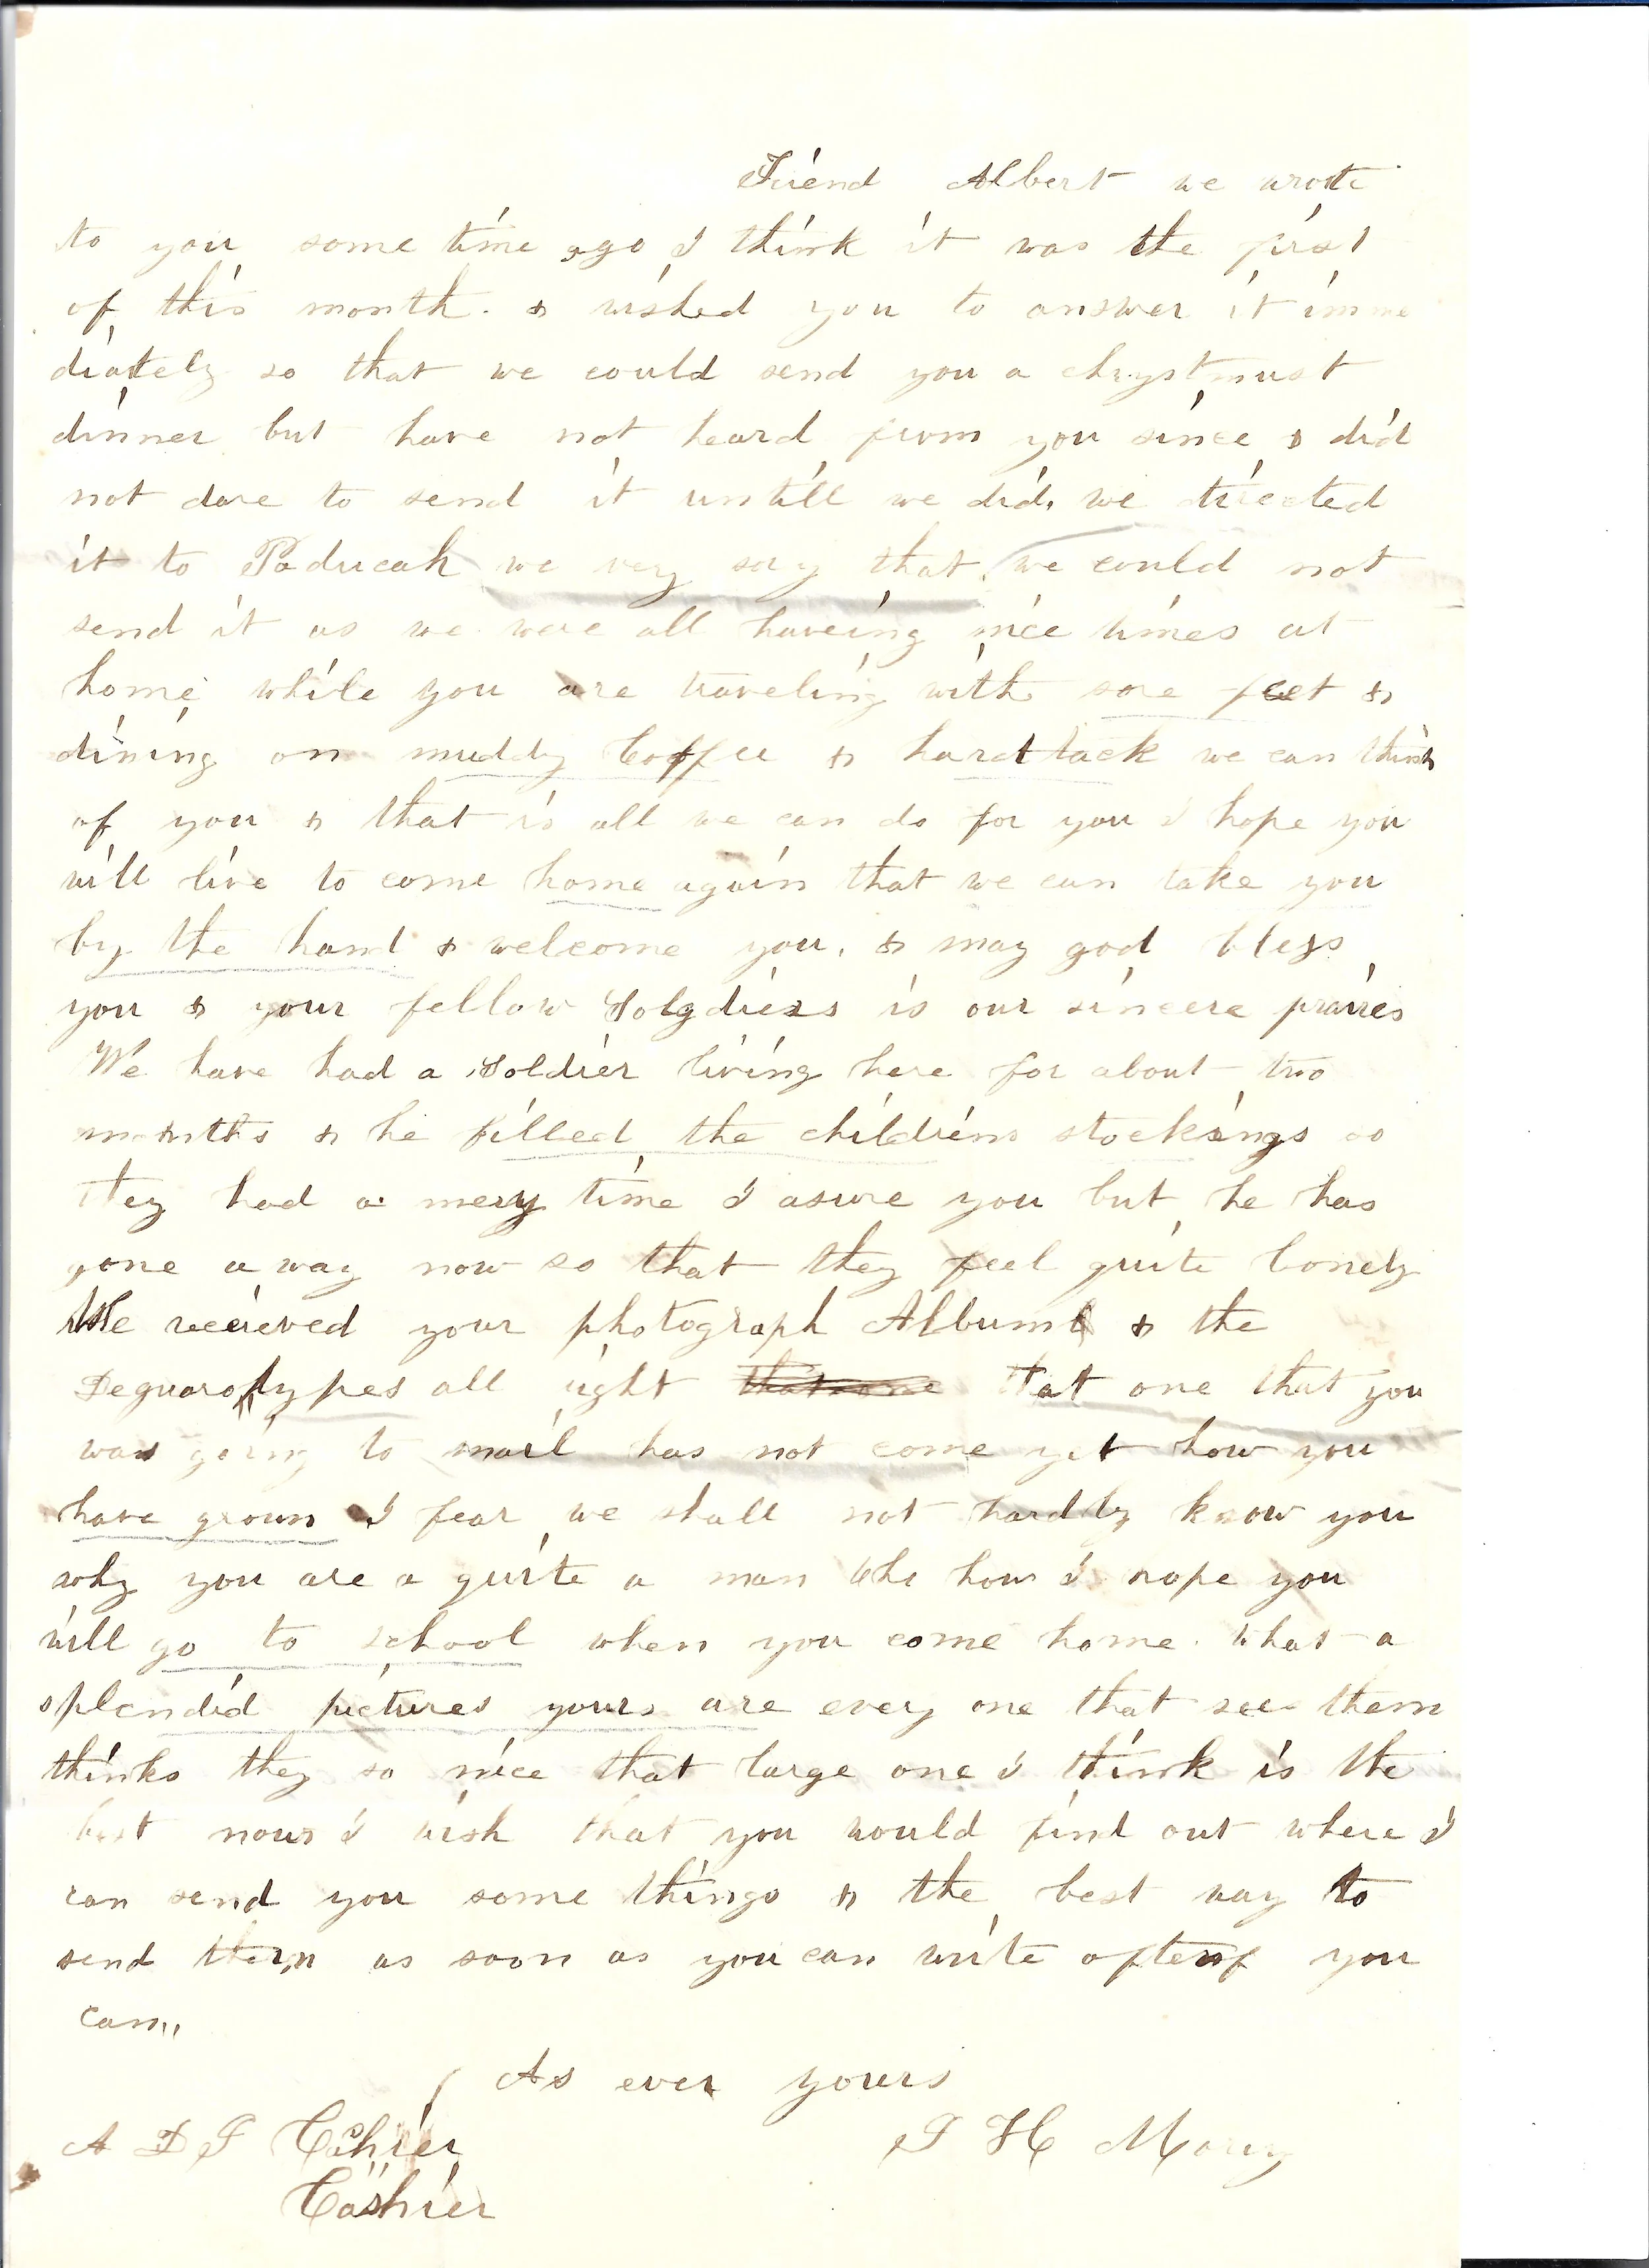 Friend Albert we wrote
to you some time ago I think it was the first
of this month. & wished you to answer it imme
diately so that we could send you a chrystmust
dinner but have not heard from you since & did
not dare to send it untill we did, we directed
it to Paducah we very sory that we could not
send it as we were all haveing nice times at
home while you are traveling with sore feet &
dining on muddy Coffee & hardtack we can think
of you & that is all we can do for you I hope you
will live to come home again that we can take you
by the hand & welcome you, & may god bless
you & your fellow Solgdiers is our sincere praires
We have had a soldier living here for about two
months & he filled the childrens stockings so
they had a mery time I asure you but he has
gone a way now so that they feel quite lonely
We recieved your photograph Album & the
Deguarotypes all right that one that you
was going to mail has not come yet how you
have grown I fear we shall not hardly know you
why you are a quite a man I hope you
will go to school when you come home. what a
splendid pictures yours are every one that see them
thinks they so nice that large one I think is the
best now I wish that you would find out where I
can send you some things & the best way to
send them as soon as you can write often you
can,,
As ever yours
A D J Cshier S H Morey
Cashier